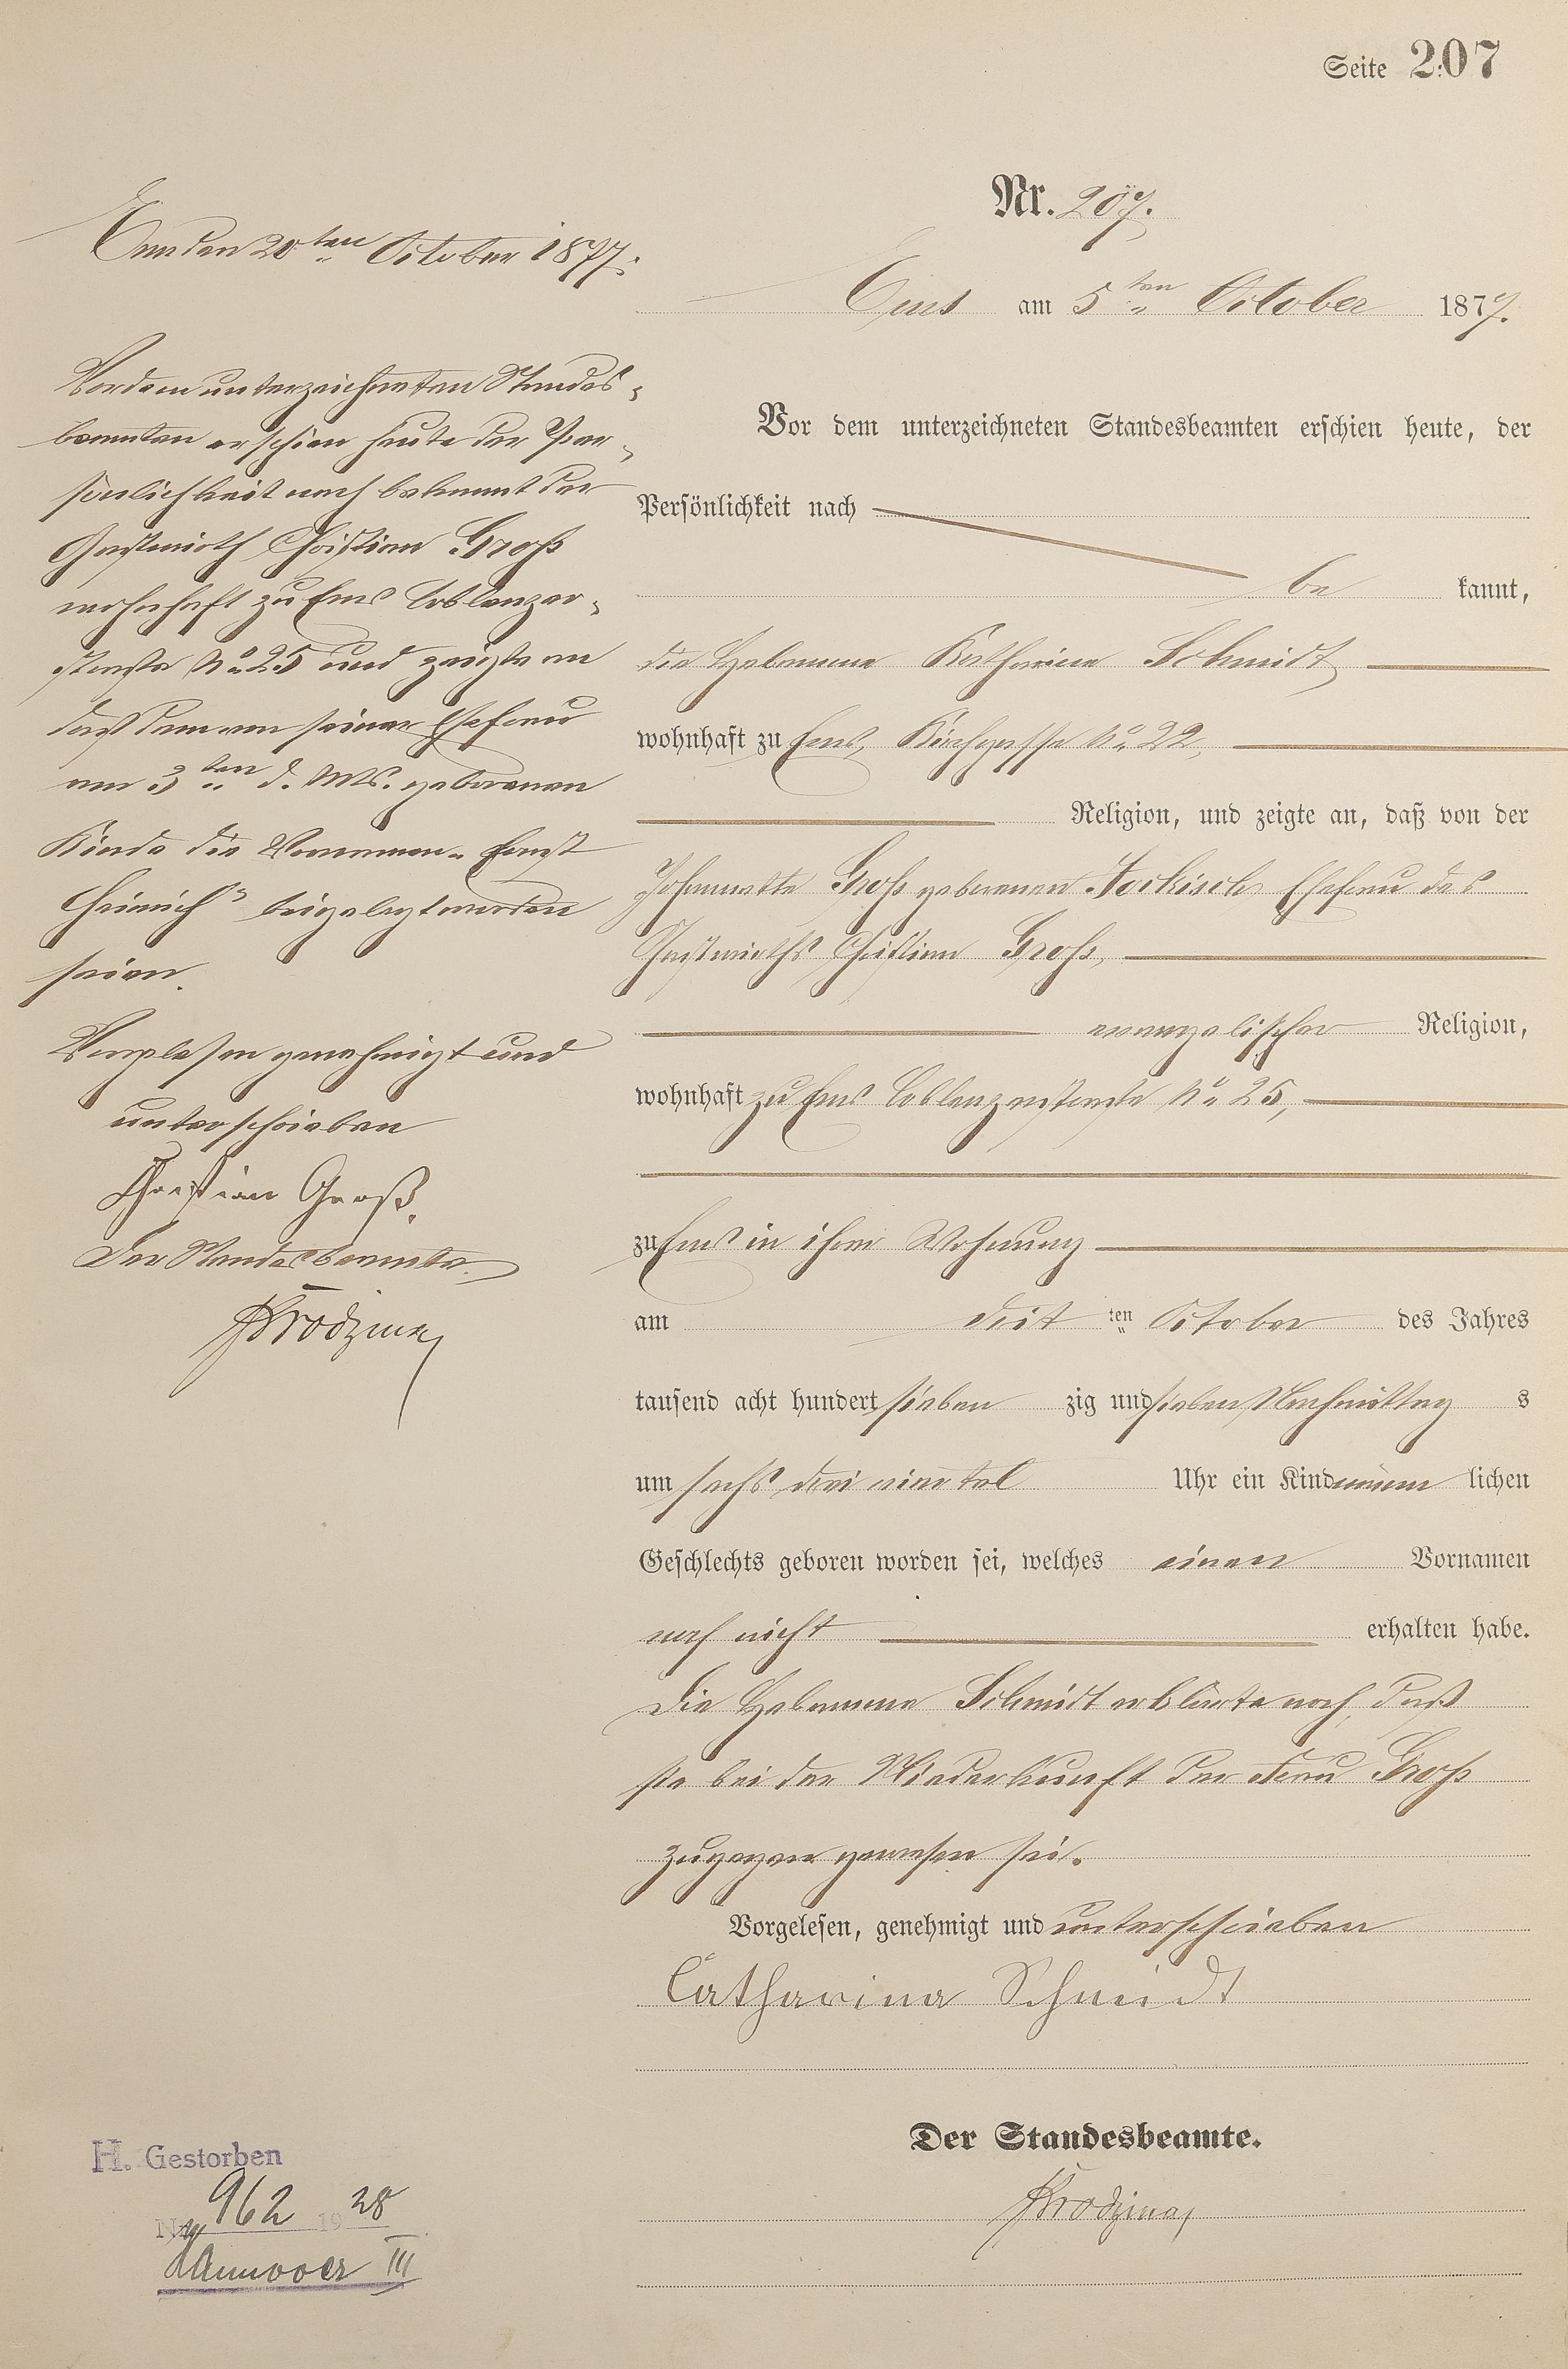 Seite 207
Nr. 207.
Ems am 5ten October 1877.
Vor dem unterzeichneten Standesbeamten erschien heute, der
Persönlichkeit nach
be kannt,
die Hebamme Katharina Schmidt
wohnhaft zu Ems, Kirchgasse No 22,
Religion, und zeigte an, daß von der
Johannette Groß geborenen Jockisch Ehefrau des
Gastwirths Christian Groß,
evangelischer Religion,
wohnhaft zu Ems Coblenzerstraße No 25,
zu Ems in ihrer Wohnung
am drit ten October des Jahres
tausend acht hundert sieben zig und sieben Nachmittag s
um sechs drei viertel Uhr ein Kind männ lichen
Geschlechts geboren worden sei, welches einen Vornamen
noch nicht erhalten habe.
Die Hebamme Schmidt erklärte noch, daß
sie bei der Niederkunft der Frau Groß
zugegen gewesen sei.
Vorgelesen, genehmigt und unterschrieben
Catharina Schmidt
Der Standesbeamte.
Ems den 20ten October 1877.
Vor dem unterzeichneten Standes-
beamten erschien heute der Per-
sönlichkeit nach bekannt der
Gastwirth Christian Groß
wohnhaft zu Ems Coblenzer-
straße No 25 und zeigte an
daß dem von seiner Ehefrau
am 3ten d. Mts. geborenen
Kinde die Vornamen „Ernst
Heinrich“ beigelegt worden
seien.
Vorgelesen genehmigt und
unterschrieben
Christian Groß.
Der Standesbeamte.
H. Gestorben
Nr. 962 1928
Hannover III